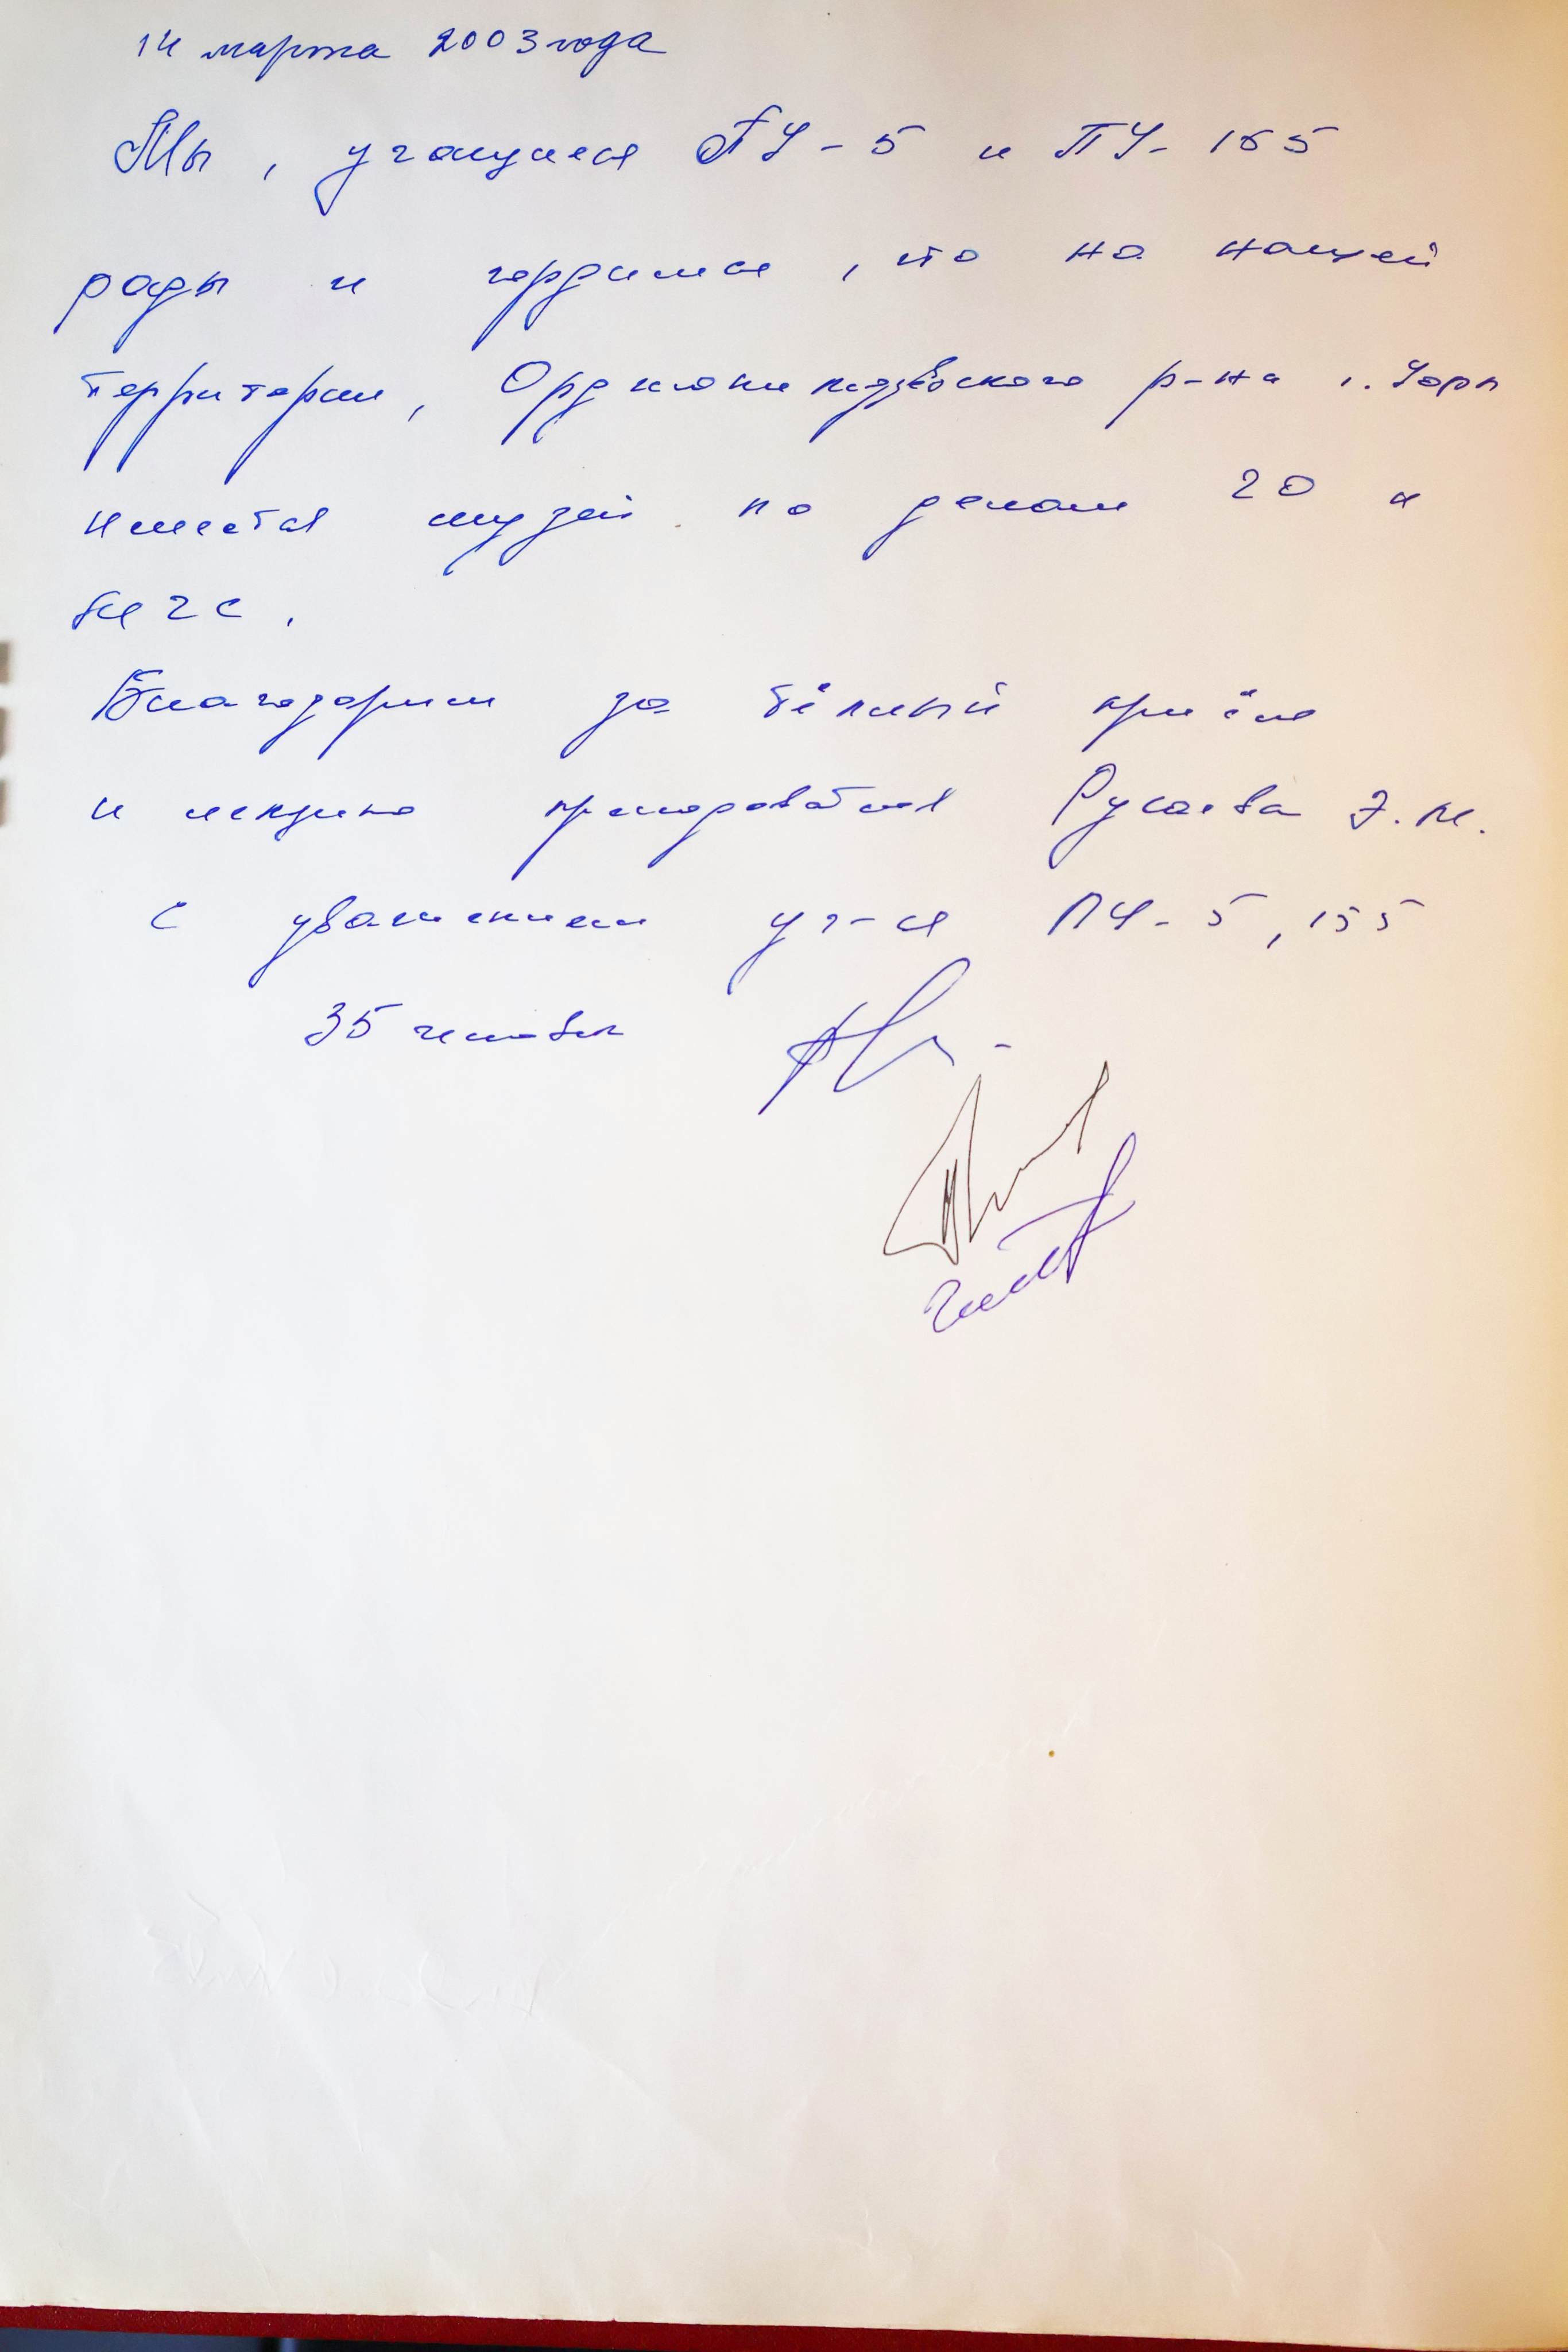 14 марта 2003 года
Мы, учащиеся ПУ-5 и ПУ-155
рады и гордимся, что на нашей
территории, Орджоникидзевского р-на г. Уфы
имеется музей по делам ГО и
ЧС.
Благодарим за тёплый приём
и лекцию преподавателя Русаева Э.М.
С уважением уч-ся ПУ-5, 155
35 человек